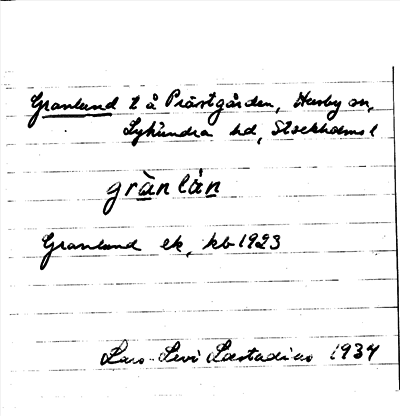 Granlund t å Prästgården, Husby sn,
Lyhundra hd, Stockholms l
gràn làn
Granlund ek, kb 1923
Lars-Levi Læstadius 1934